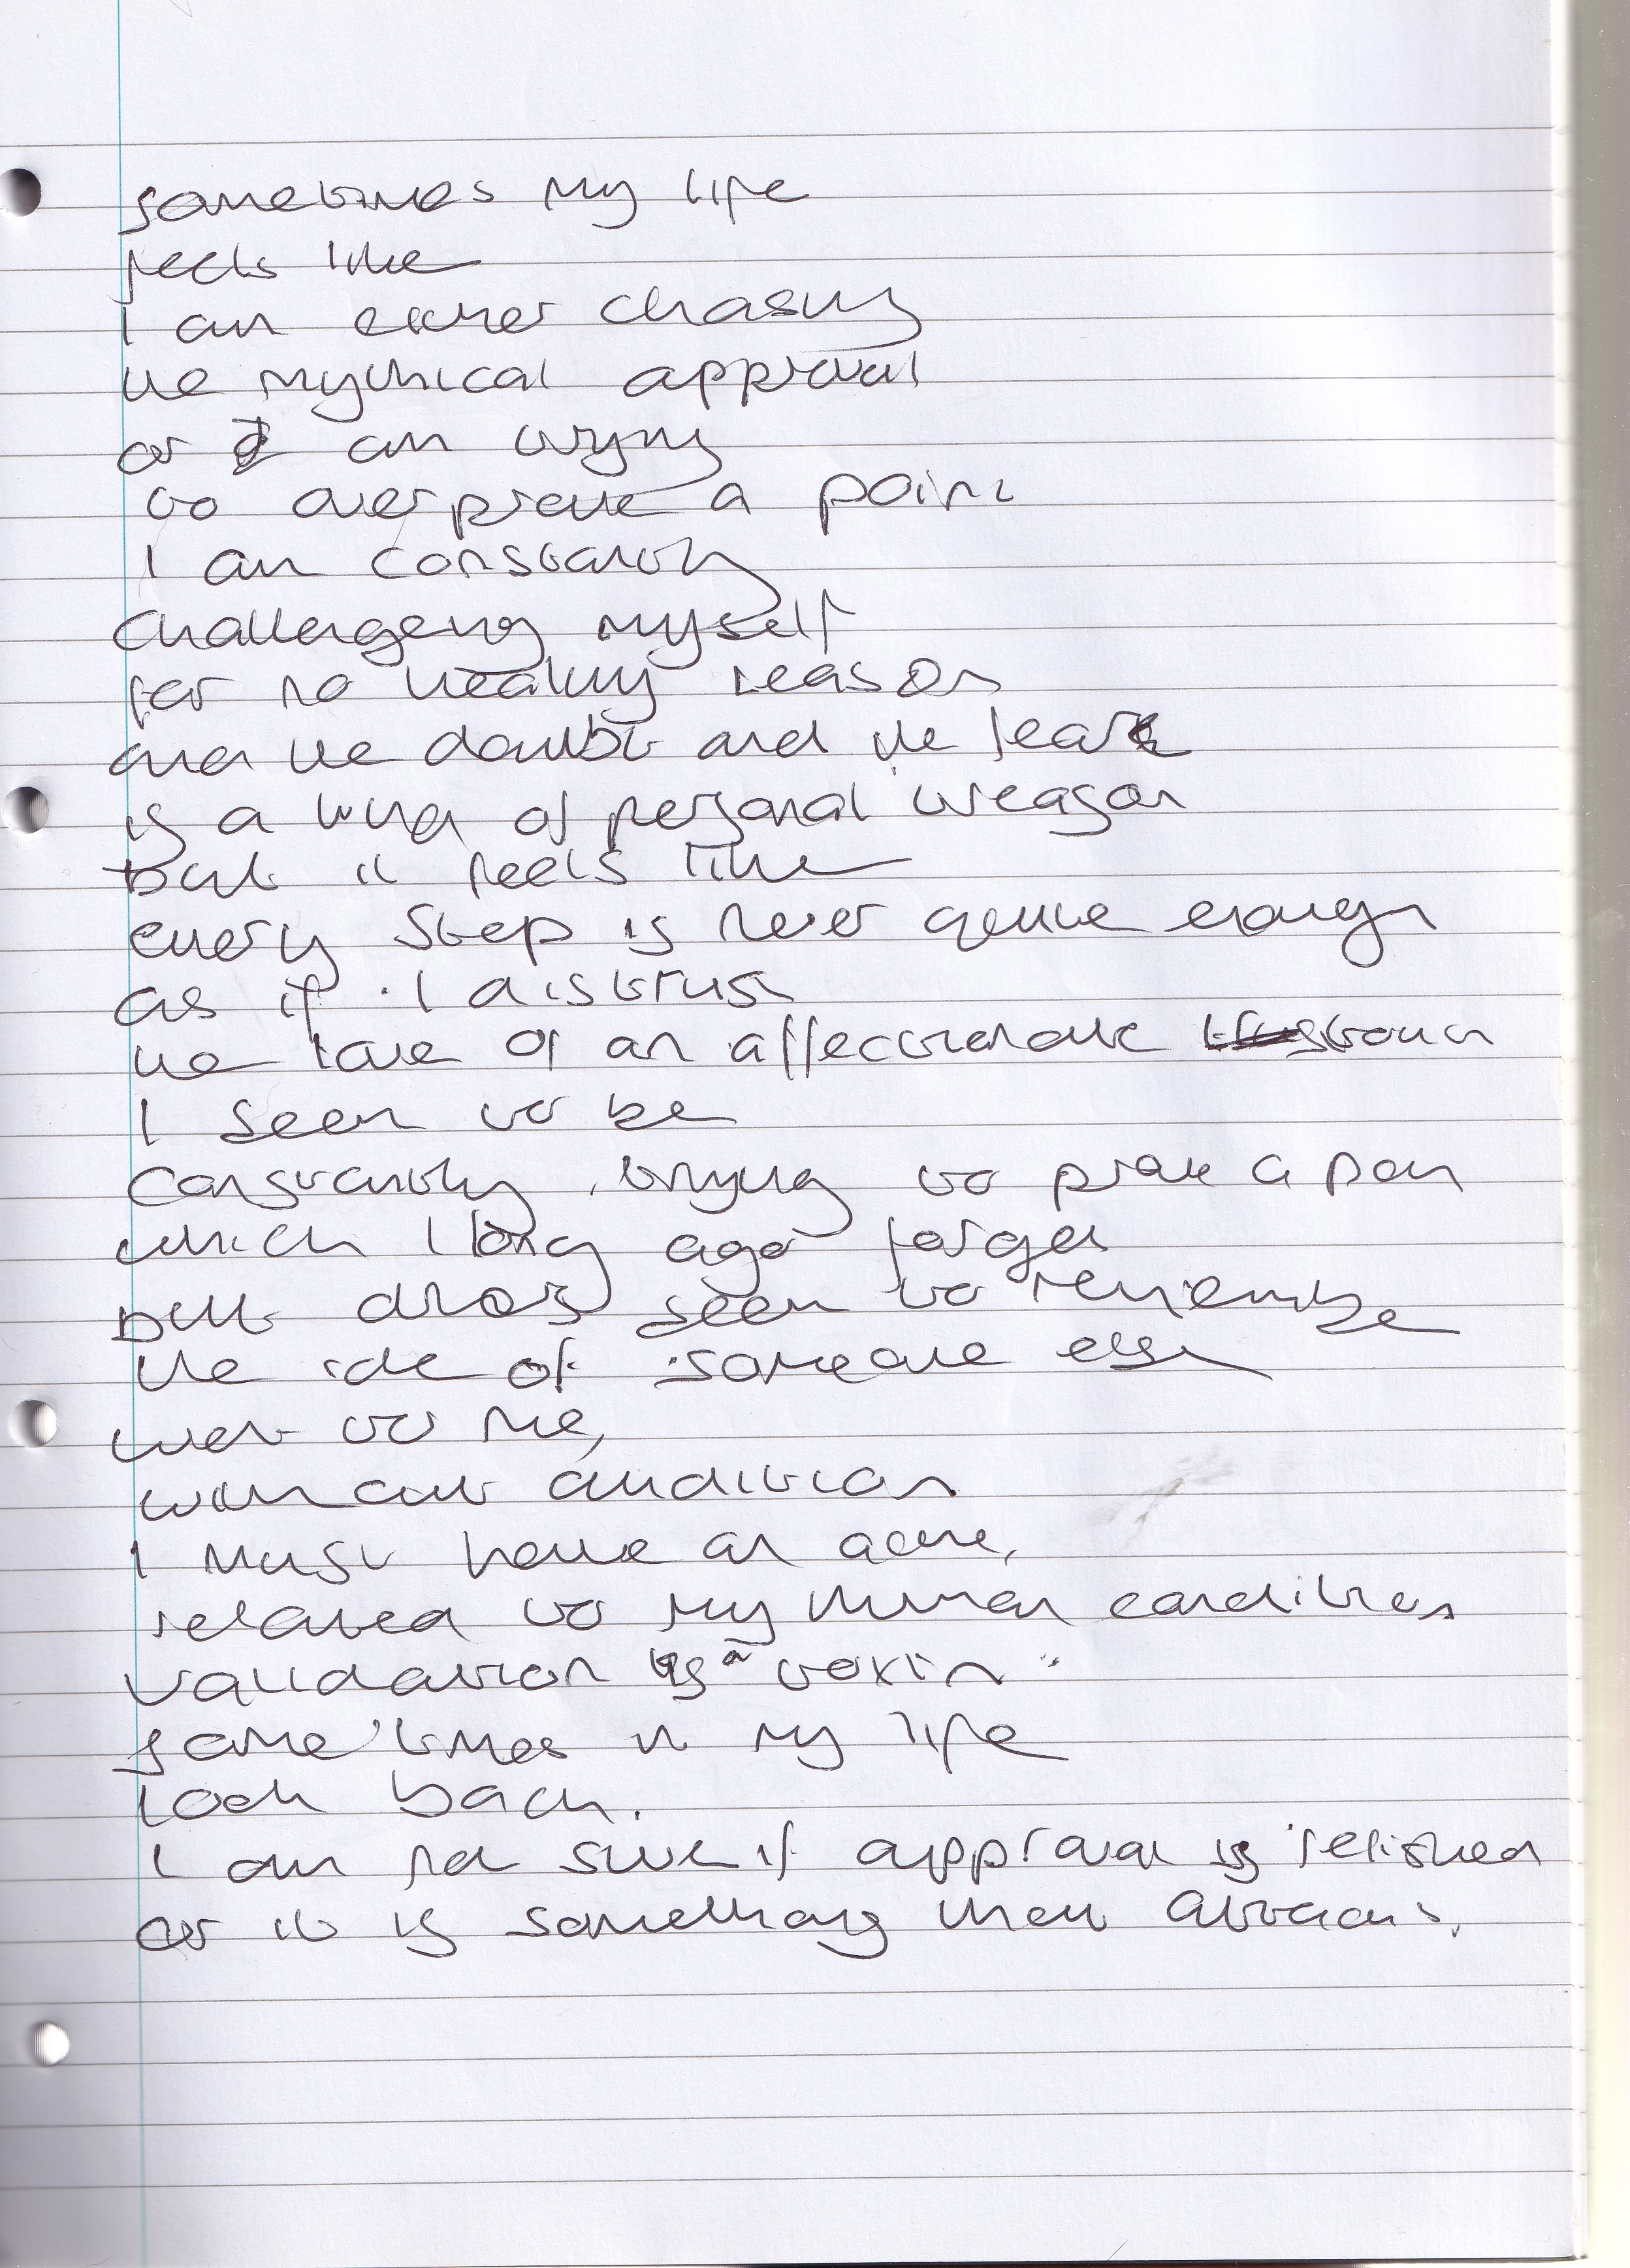 sometimes my life
feels like
I am either chasing
the mythical approval
or I am trying
to over prove a point
I am constantly
challengeing myself
for no healthy reason
and the doubt and the fear
is a kind of personal weapon
but it feels like
every step is never quite enough
as if I distrust
the love of an affectionate touch
I seem to be
constantly trying to prove a point
which I long ago forget
but always seem to remember
the of someone else
went to me,
without condition
I must have an acne,
related to my human condition
validation is a toxin
some times in my life
look back.
I am not sure if approval is relished
or it is something that